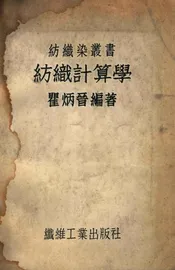 紡織染叢書
紡織計算學
瞿炳晉編著
纖維工業出版社